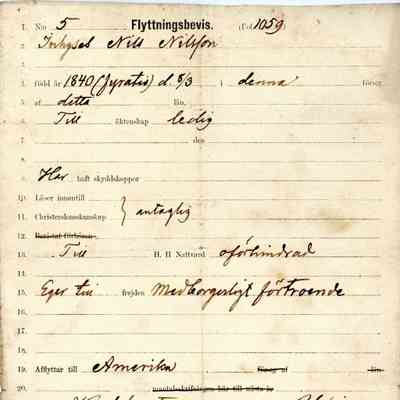 1. N:o 5 Flyttningsbevis. (Fol. 1059)
2. Inhyses Nils Nilsson
3.
4. född år 1840 (fyratio) d. 5/3 i denna förseg
5. af detta län,
6. Till äktenskap ledig
7. den
8.
9. Har haft skyddskoppor
10. Läser innantill
11. Christendomskunskap } antaglig
12.
13. Till H. H Nattvard oförhindrad
14.
15. Eger till frejden Medborgerligt förtroende
16.
17.
18.
19. Afflyttar till Amerika län.
20. mantalsskrifningen här till nästa år